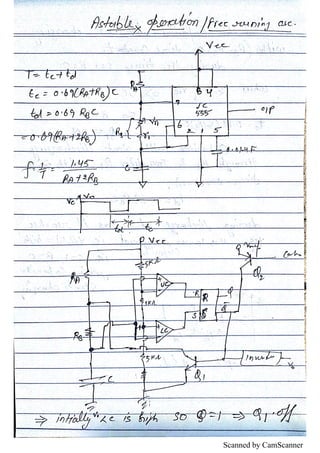 Astable operation / free running ckt.
Vcc
T = tc + td
tc = 0.69(RA+RB)C
td = 0.69 RBC
= 0.69(RA+2RB)
f = 1/T = 1.45 / RA+2RB
RA
8 4
7
IC
555
O/P
6
2 1 5
0.01µF
Vc
td tc
Vcc
5KΩ
RA
UC
R
Q
5KΩ
Q2
RB
LC
S
5KΩ
C
Q1
Inverter
Vo
⇒ initially Lc is high so Q=1 ⇒ Q1 off
Scanned by CamScanner